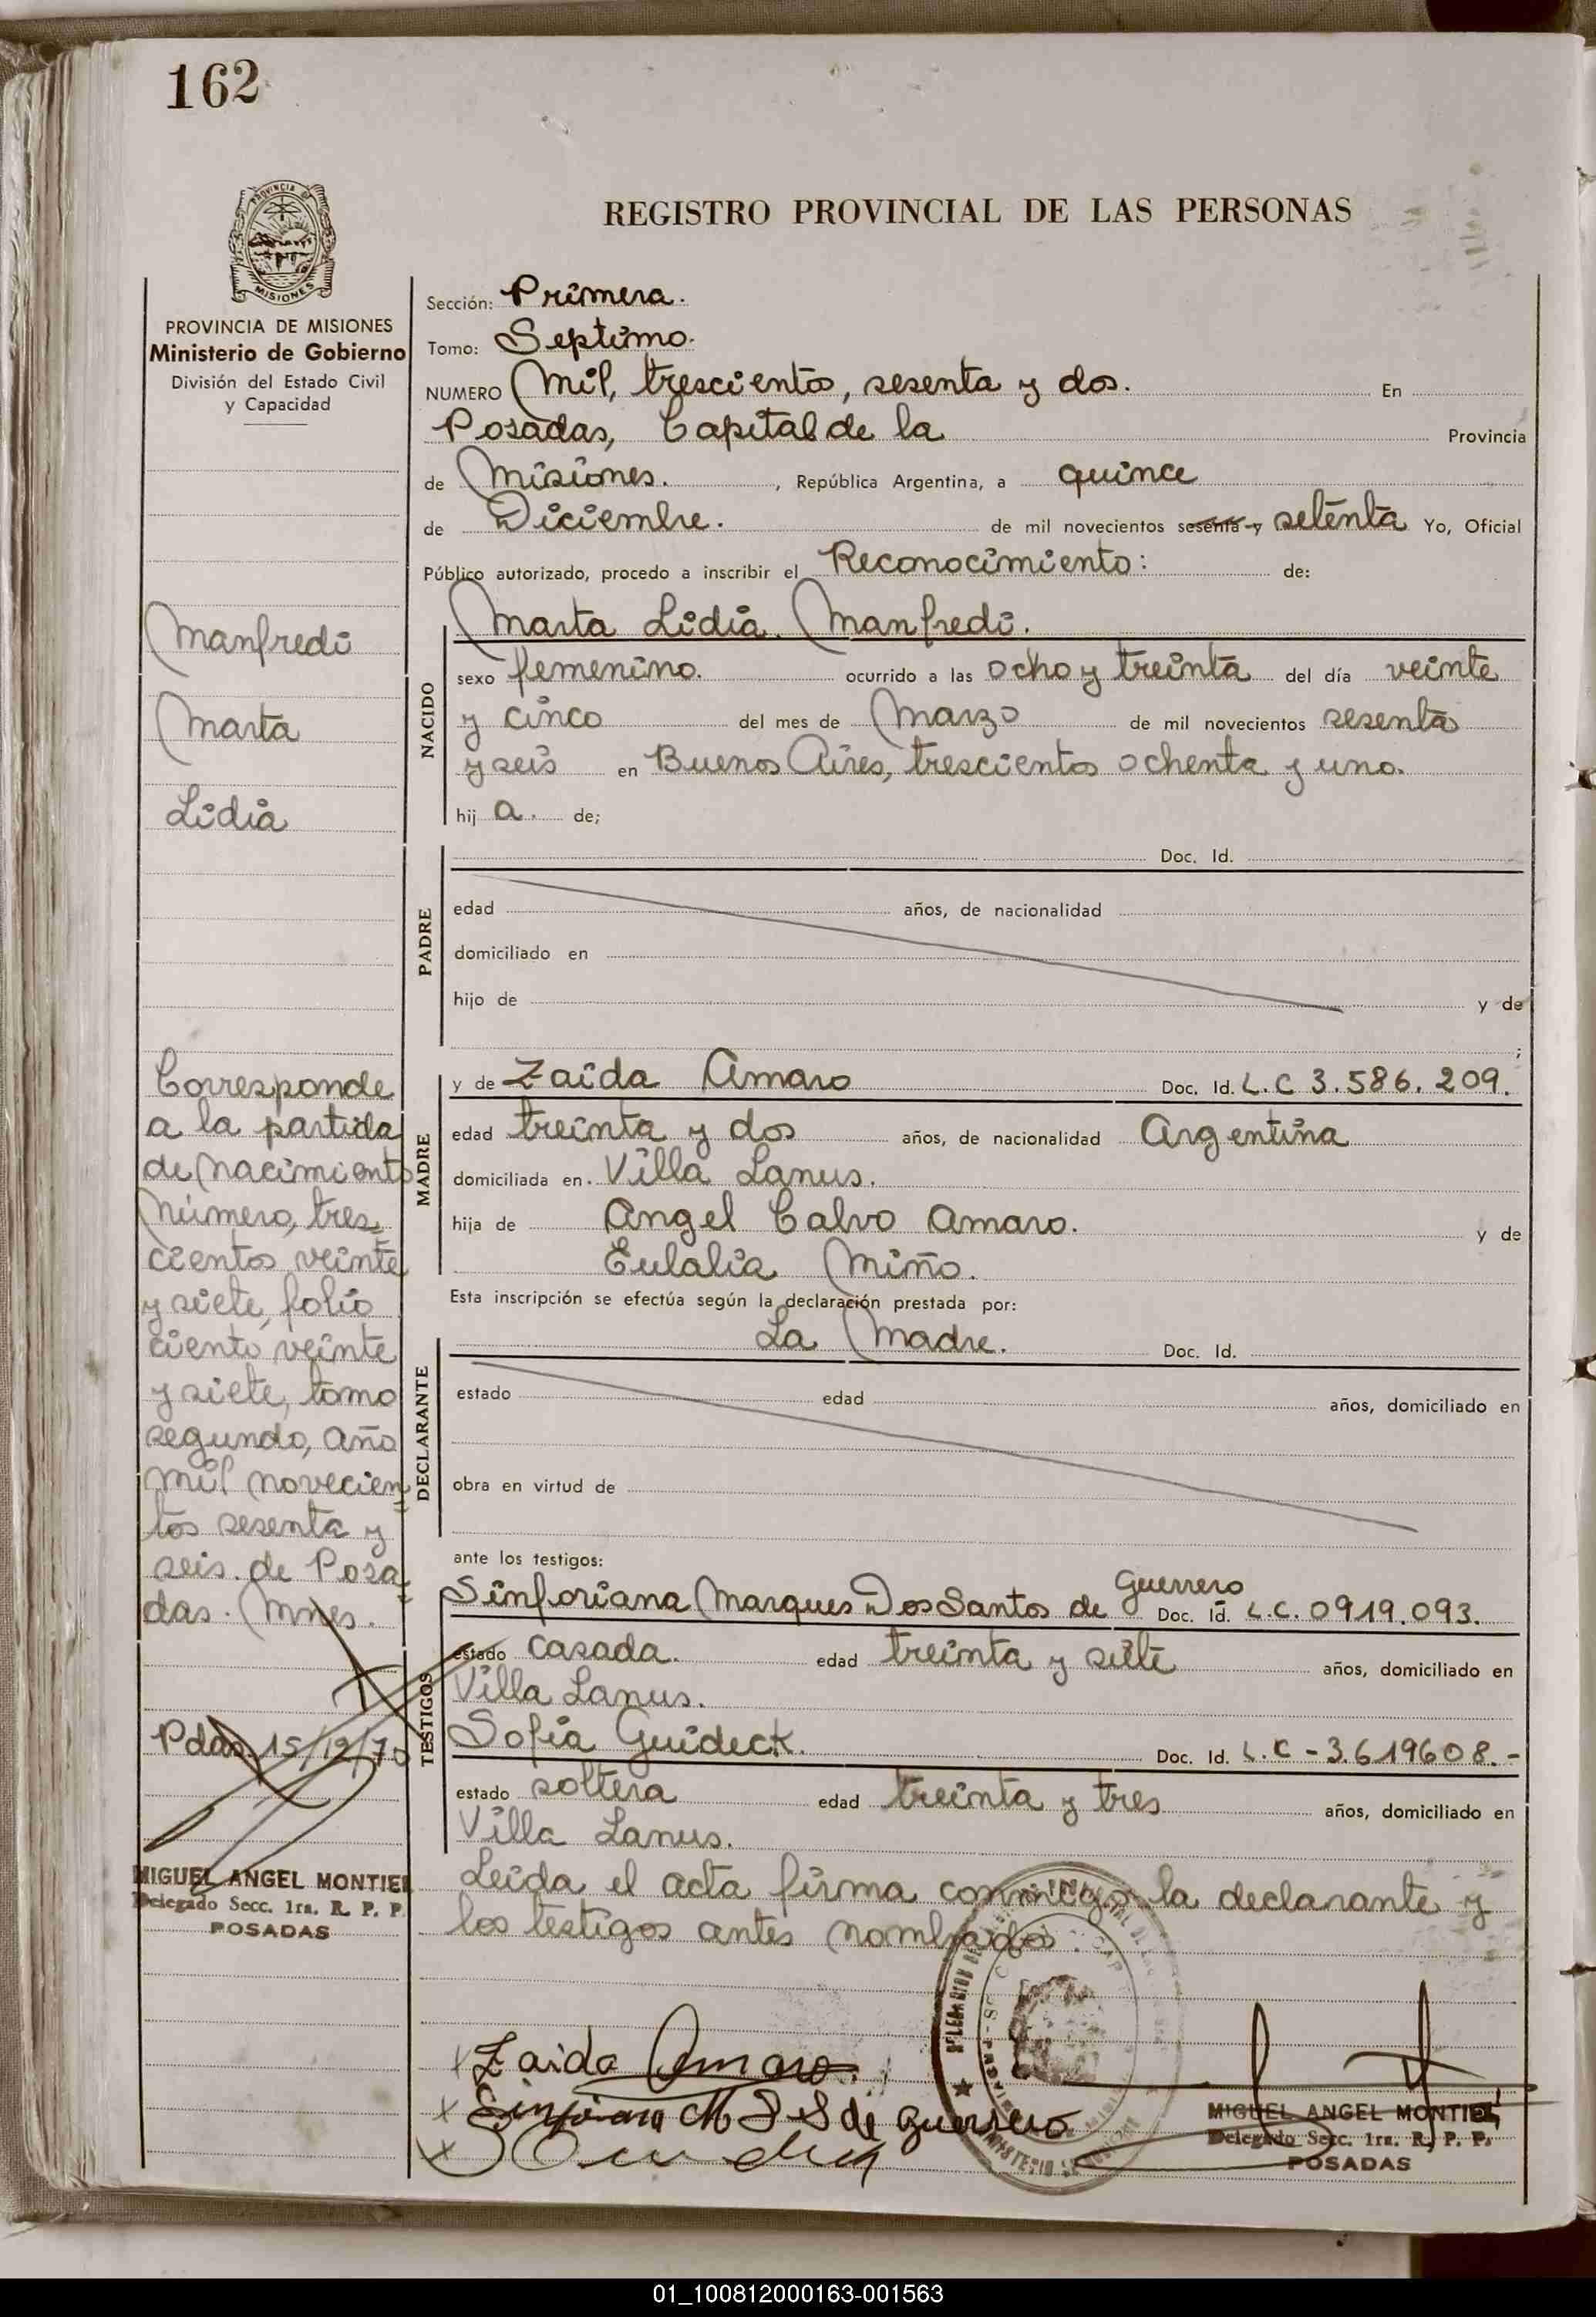 162
PROVINCIA DE
MISIONES
REGISTRO PROVINCIAL DE LAS PERSONAS
PROVINCIA DE MISIONES
Ministerio de Gobierno
División del Estado Civil
y Capacidad
Manfredi
Marta
Lidia
Corresponde
a la partida
de Nacimiento
Número, tres
cientos veinte
y siete, folio
ciento veinte
y siete, tomo
segundo, año
mil novecien
tos sesenta y
seis. de Posa
das. Mnes.
Pdas. 15/12/70
MIGUEL ANGEL MONTIEL
Delegado Secc. 1ra. R. P. P.
POSADAS
Sección: Primera.
Tomo: Septimo.
NUMERO Mil, trescientos, sesenta y dos. En
Posadas, Capital de la Provincia
de Misiones. , República Argentina, a quince
de Diciembre. de mil novecientos sesenta y setenta Yo, Oficial
Público autorizado, procedo a inscribir el Reconocimiento: de:
Marta Lidia. Manfredi.
NACIDO
sexo femenino. ocurrido a las ocho y treinta del día veinte
y cinco del mes de Marzo de mil novecientos sesenta
y seis en Buenos Aires, trescientos ochenta y uno.
hij a. de;
PADRE
Doc. Id.
edad años, de nacionalidad
domiciliado en
hijo de y de
;
MADRE
y de Zaida Amaro Doc. Id. L.C 3.586.209.
edad treinta y dos años, de nacionalidad Argentina
domiciliada en. Villa Lanus.
hija de Angel Calvo Amaro. y de
Eulalia Miño.
Esta inscripción se efectúa según la declaración prestada por:
La Madre. Doc. Id.
DECLARANTE
estado edad años, domiciliado en
obra en virtud de
ante los testigos:
TESTIGOS
Sinforiana Marques Dos Santos de Guerrero Doc. Id. L.C. 0919.093.
estado casada. edad treinta y siete años, domiciliado en
Villa Lanus.
Sofia Guideck. Doc. Id. L.C - 3.619608.-
estado soltera edad treinta y tres años, domiciliado en
Villa Lanus.
Leida el acta firma conmigo la declarante y
los testigos antes nombrados.
x Zaida Amaro
x Sinforiana M D S de guerrero
x
MIGUEL ANGEL MONTIEL
Delegado Secc. 1ra. R. P. P.
POSADAS
01_100812000163-001563